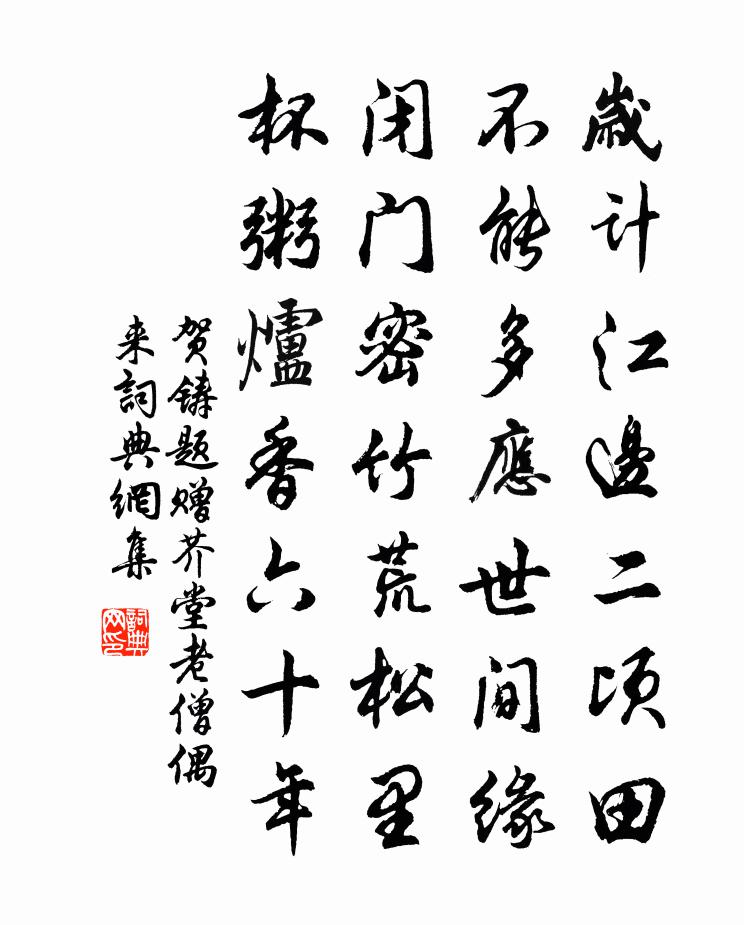 歲計江邊二頃田
不能多應世間緣
閉門密竹荒松里
杯粥爐香六十年
贺鑄题赠芥堂老僧偶
来詞典網集
詞典网印